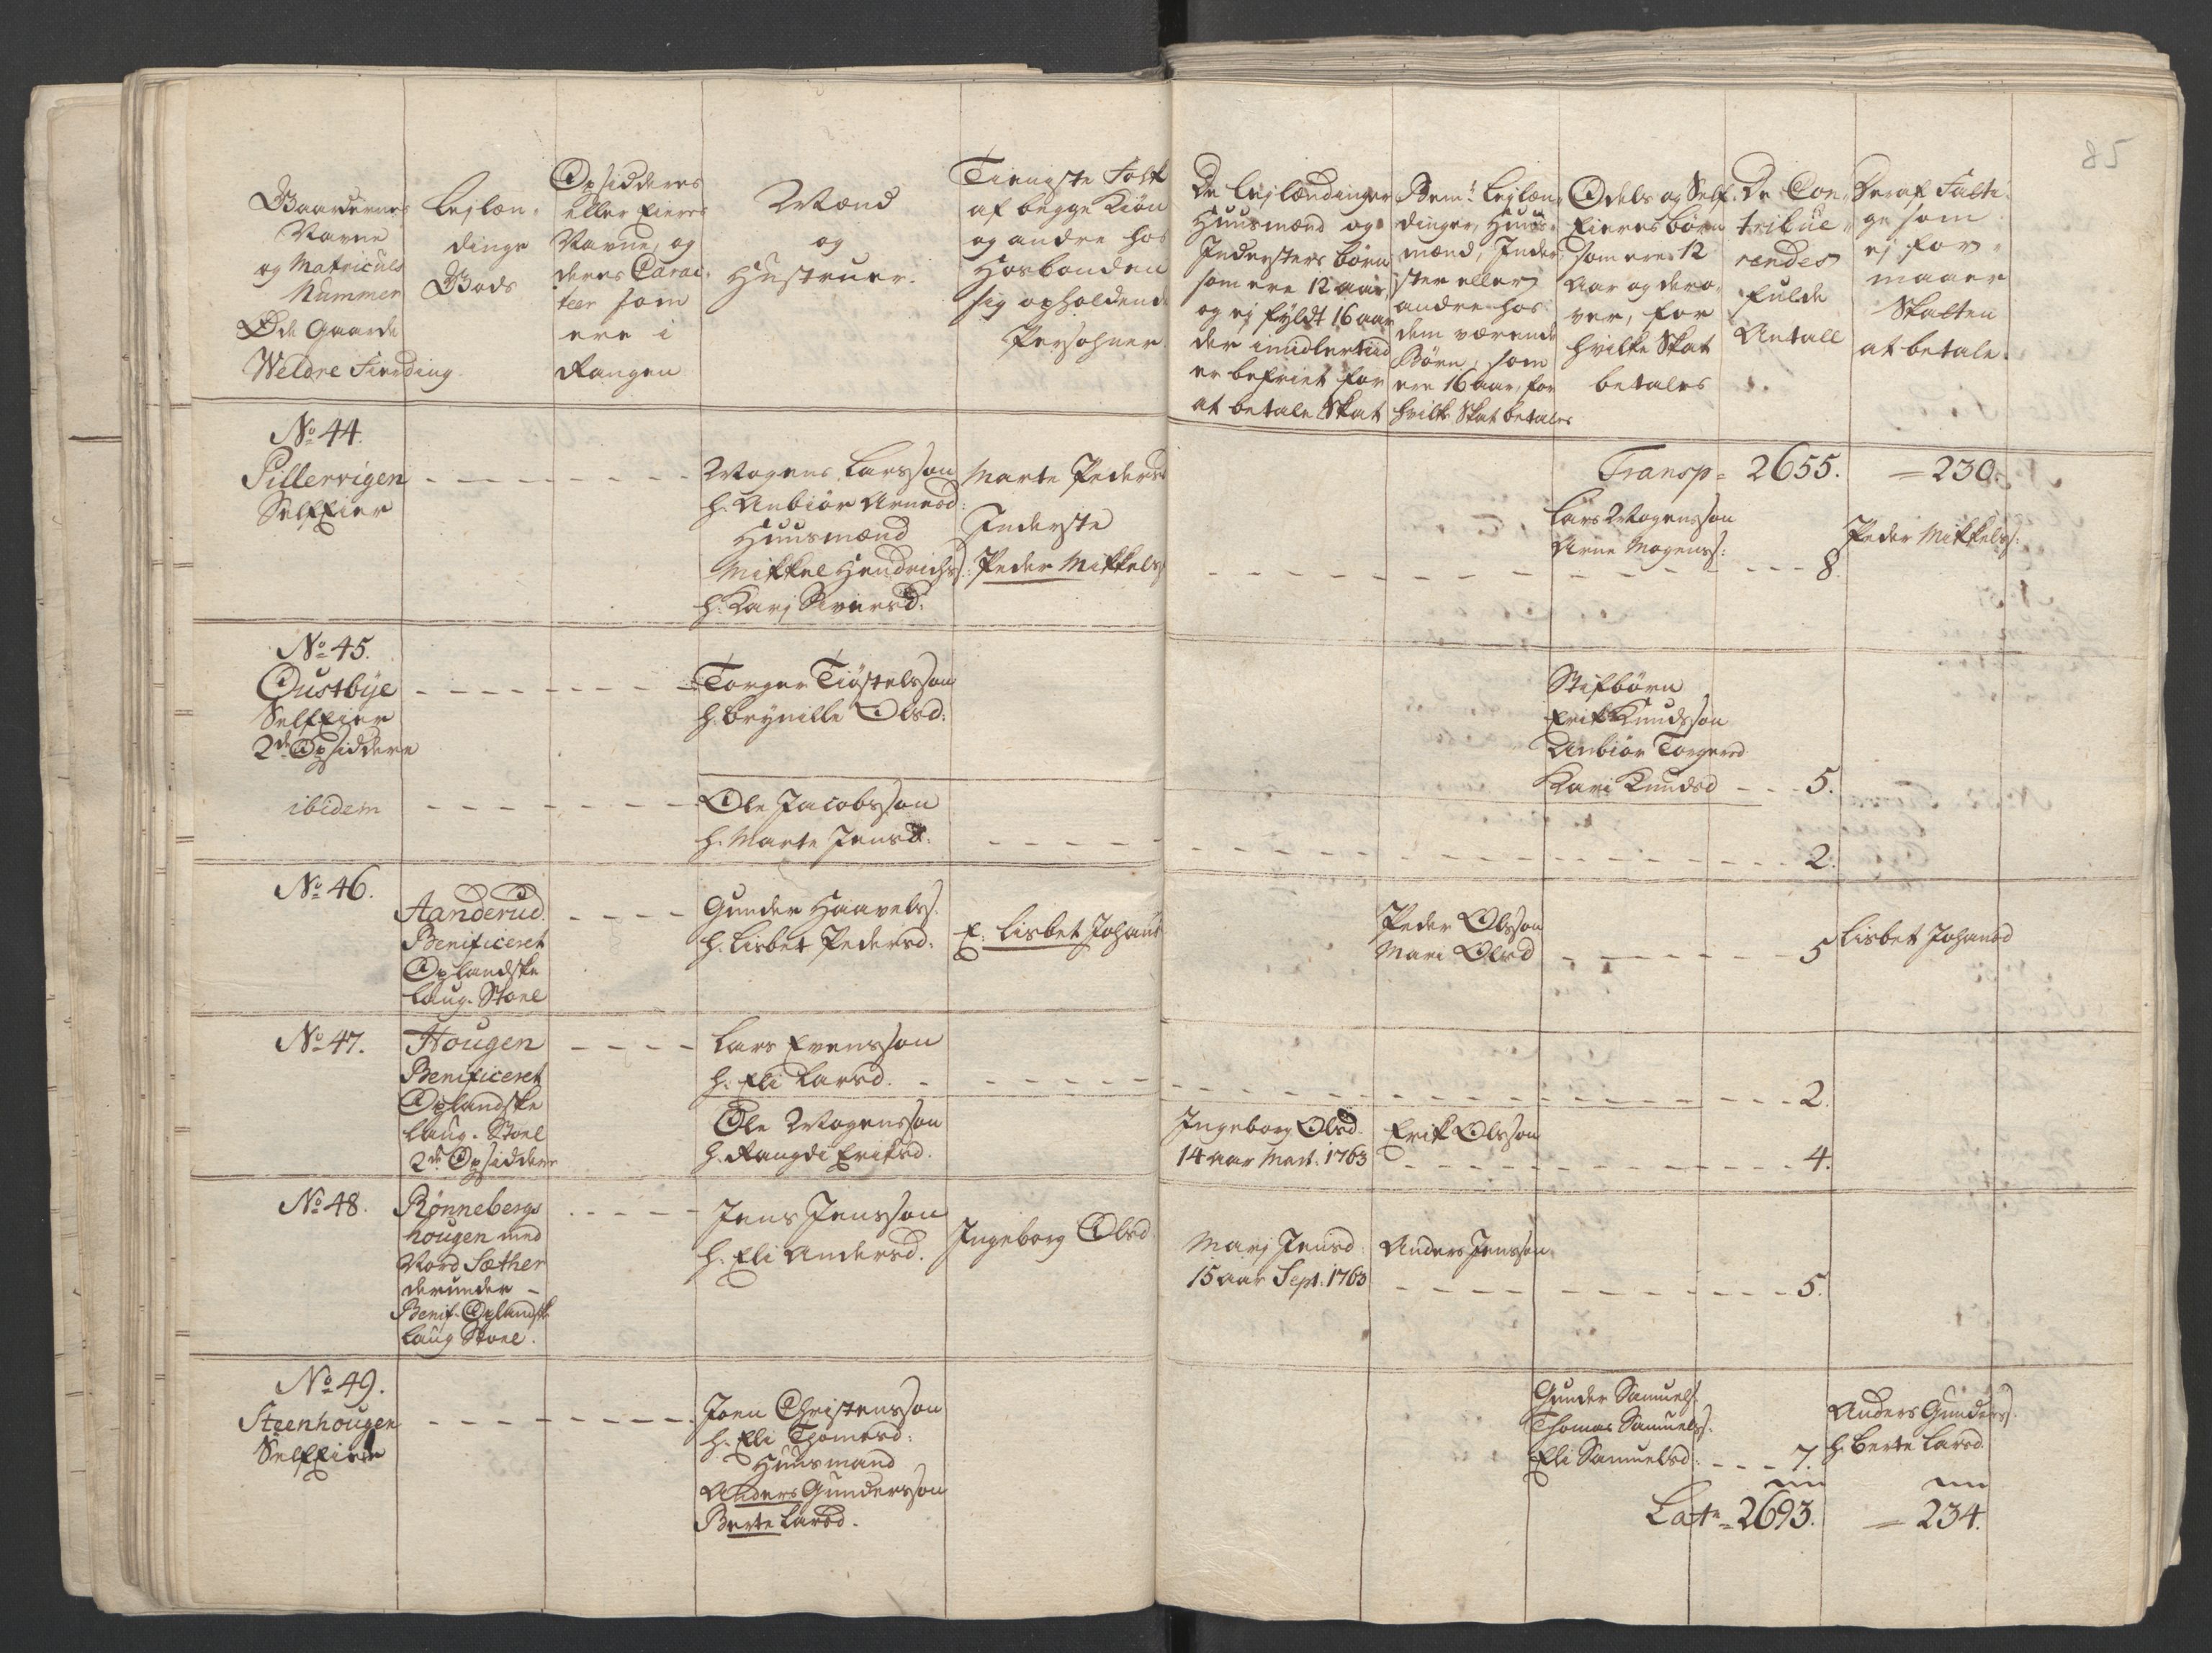 85
Gaardernes
Navne
og Matriculs
Nummer
Øde Gaarde
Weldre Fierding
Lejlæn-
dings
Gods
Opsidderes
eller Eieres
Navne, og
deres Carac-
teer som
ere i
Rangen
Mænd
og
Hustruer.
Tienste Folk
af begge Kiøn
og andre hos
Hosbonden
sig opholdende
Persohner
De Lejlændinger
Huusmænd og
Inderster børn
som ere 12 aar,
og ej fyldt 16 aar
der imidlertiid
er befriet for
at betale Skat
Bemte Lejlæn-
dinger, Huus-
mænd, Inder-
ster eller
andre hos
dem værende
Børn, som
ere 16 aar, for
hvilke Skat betales
Odels og Self-
Eieres børn
som ere 12
Aar og dero-
ver, for
hvilke Skat
betales
De Con-
tribue-
rendes
fulde
Antall
Deraf Fatti-
ge som
ej for-
maaer
Skatten
at betale.
No 44.
Pillervigen
SelfEier
Mogens Larsson
h. Anbiør Arnesd:
Huusmænd
Mikkel Hendrichs:
h. Karj Siversd:
Marte Peders
Inderste
Peder Mikkels
Transp = 2655. = 230.
Lars Mogensson
Arne Mogenss: 8.
Peder Mikkels:
No 45.
Oustbye
SelfEier
2de Opsiddere
Torger Tiøstelsson
h. Brynille Olsd:
Stifbørn
Erik Knudsson
Anbiør Torgersd
Kari Knudsd - - - 5.
ibidem
Ole Jacobsson
h. Marte Jensd: 2.
No 46.
Aanderud.
Benificeret
Oplandske
Laug-Stoel
Gunder Haavels.
h. Lisbet Pedersd:
E. Lisbet Johans
Peder Olsson
Mari Olsd 5
Lisbet Johansd
No 47.
Hougen
Benificeret
Oplandske
Laug-Stoel
2de Opsiddere
Lars Evensson
h. Eli Larsd. 2.
Ole Mogensson
h. Rangdi Eriksd.
Ingeborg Olsd.
14 aar Mart. 1763
Erik Olsson
4.
No 48.
Rønnebergs
hougen med
Nord Sæther
derunder -
Benif. Oplandsk
Laug Stoel.
Jens Jensson
h. Eli Andersd.
Ingeborg Olsd
Marj Jensd.
15 aar Sept. 1763
Anders Jensson
5.
No 49.
Steenhougen
SelfEier
Joen Christensson
h. Eli Thomesd:
Huusmand
Anders Gundersson
Berte Larsd.
Gunder Samuels.
Thomas Samuels.
Eli Samuelsd: - - - 7.
Anders Gunders.
h. Berte Larsd.
Latr = 2693. = 234.